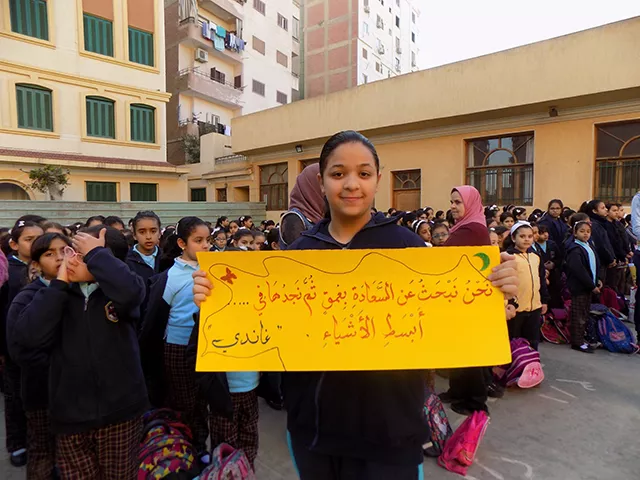 نَحْنُ نَبْحَثُ عَنِ السَّعَادَةِ بِعُمْقٍ ثُمَّ نَجِدُهَا فِي ....
أَبْسَطِ الأَشْيَاءِ .
"غاندي"